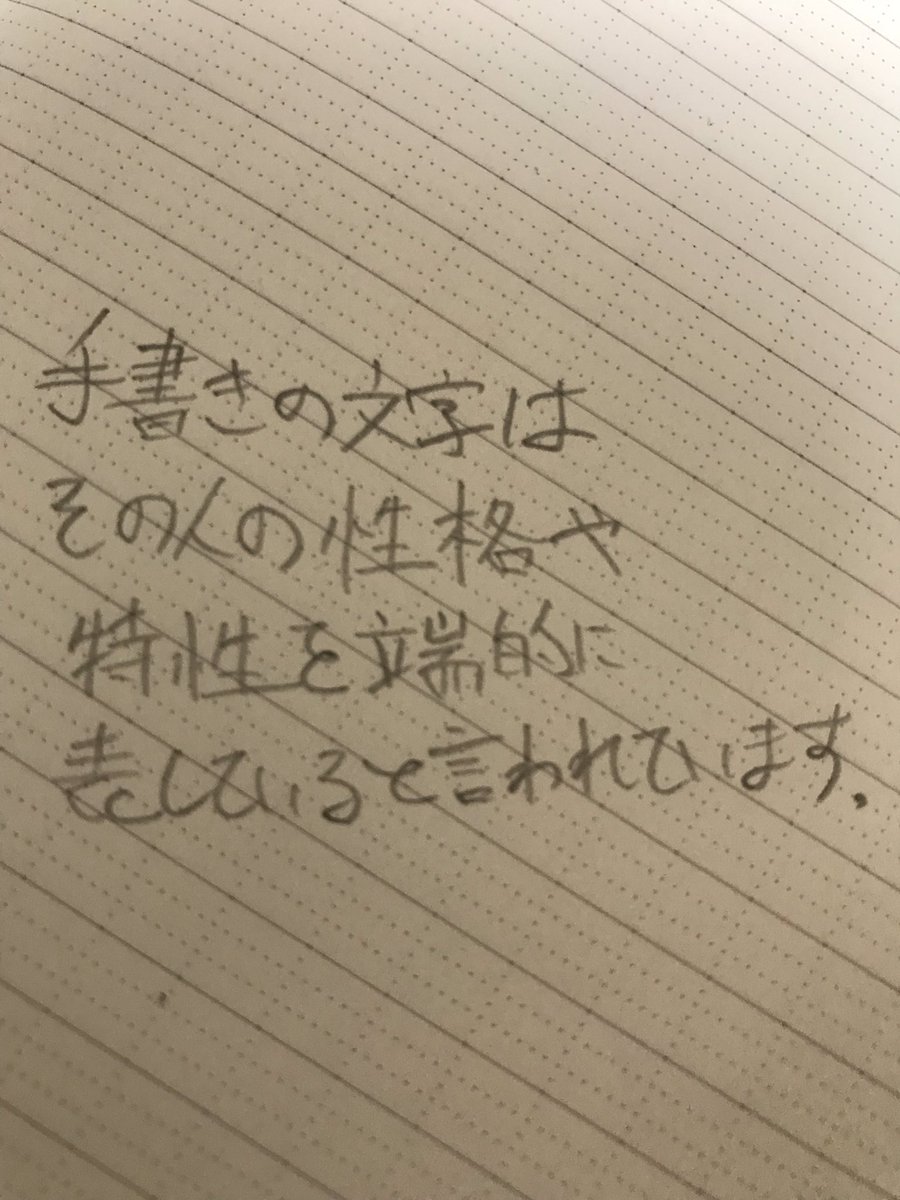 手書きの文字は
その人の性格や
特性を端的に
表していると言われています.